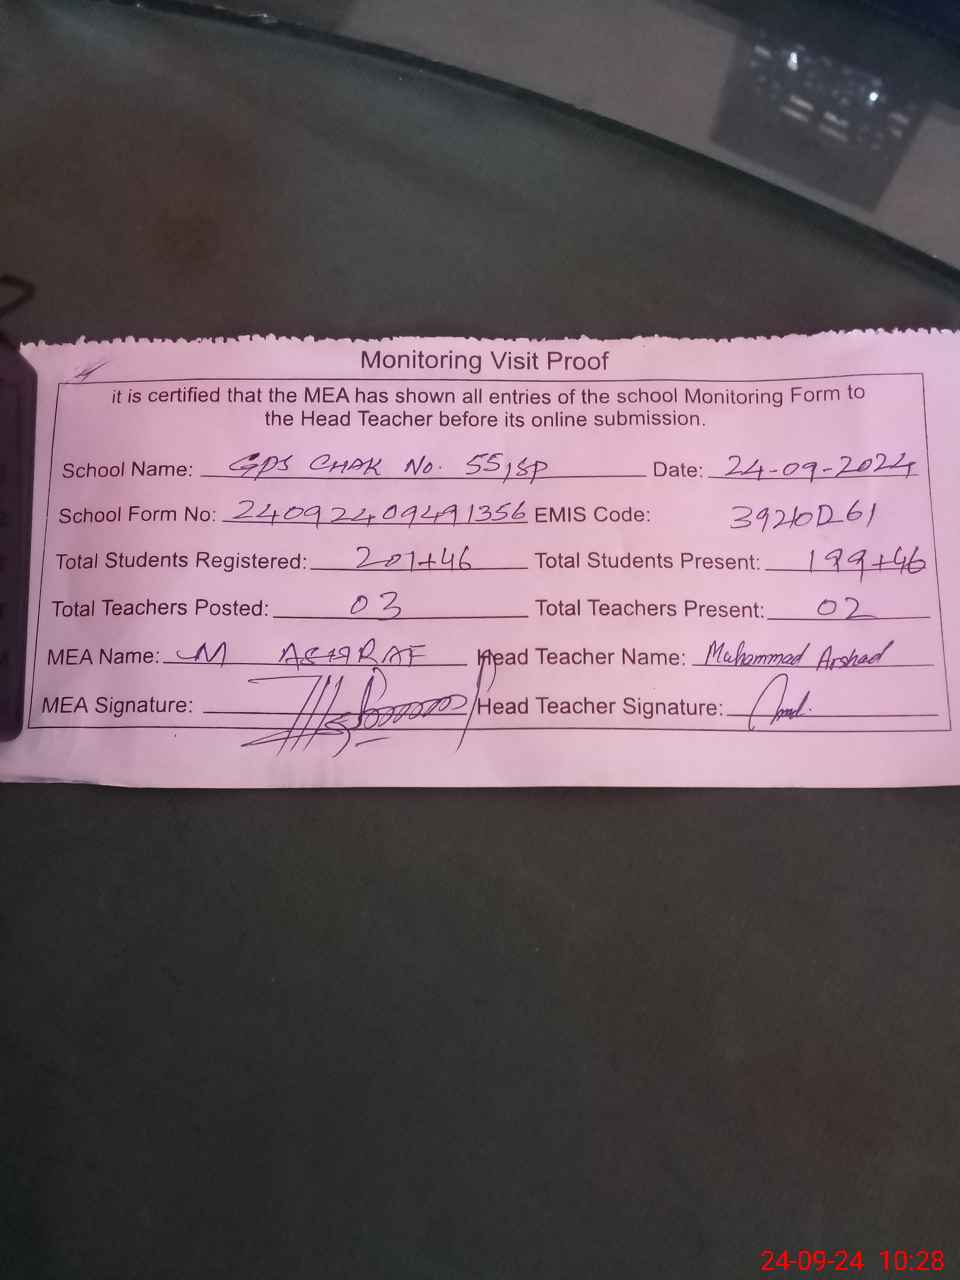 Monitoring Visit Proof
it is certified that the MEA has shown all entries of the school Monitoring Form to
the Head Teacher before its online submission.
School Name: GPS CHAK No. 55/SP Date: 24-09-2024
School Form No: 24092409491356 EMIS Code:
Total Students Registered: 201+46 Total Students Present: 199+46
Total Teachers Posted: 03 Total Teachers Present: 02
MEA Name: M ASHRAF Head Teacher Name: Muhammad Arshad
MEA Signature: Head Teacher Signature:
24-09-24 10:28